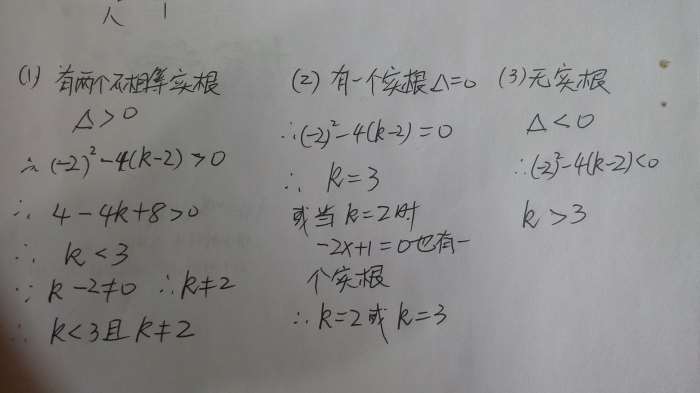 (1) 有两个不相等实根
△>0
∴(-2)²-4(k-2)>0
∴ 4-4k+8>0
∴ k<3
∵ k-2≠0 ∴k≠2
∴ k<3且k≠2
(2) 有一个实根△=0
∴(-2)²-4(k-2)=0
∴ k=3
或当k=2时
-2x+1=0也有一
个实根
∴k=2或k=3
(3)无实根
△<0
∴(-2)²-4(k-2)<0
k>3